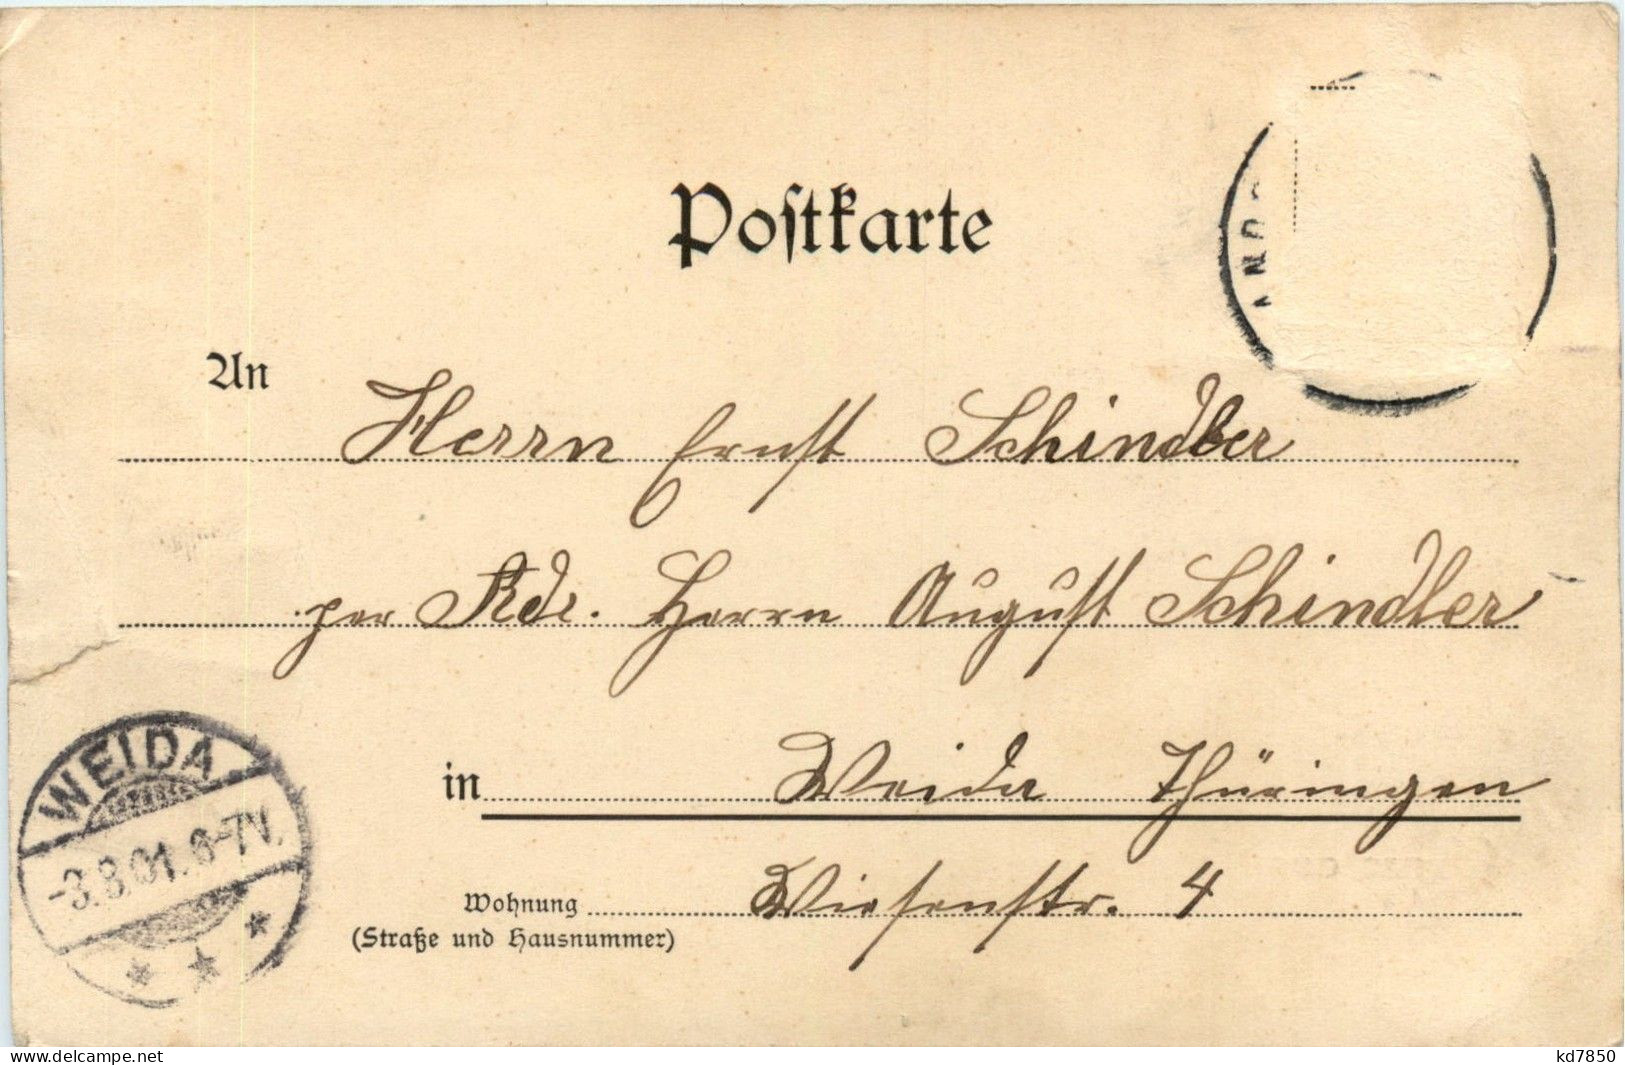 Postkarte
An Herrn Ernst Schindler
per Adr. Herrn August Schindler
in Weida Thüringen
Wohnung Wiesenstr. 4
(Straße und Hausnummer)
WEIDA
-3.8.01.6-7V.
* * *
delcampe.net
kd7850